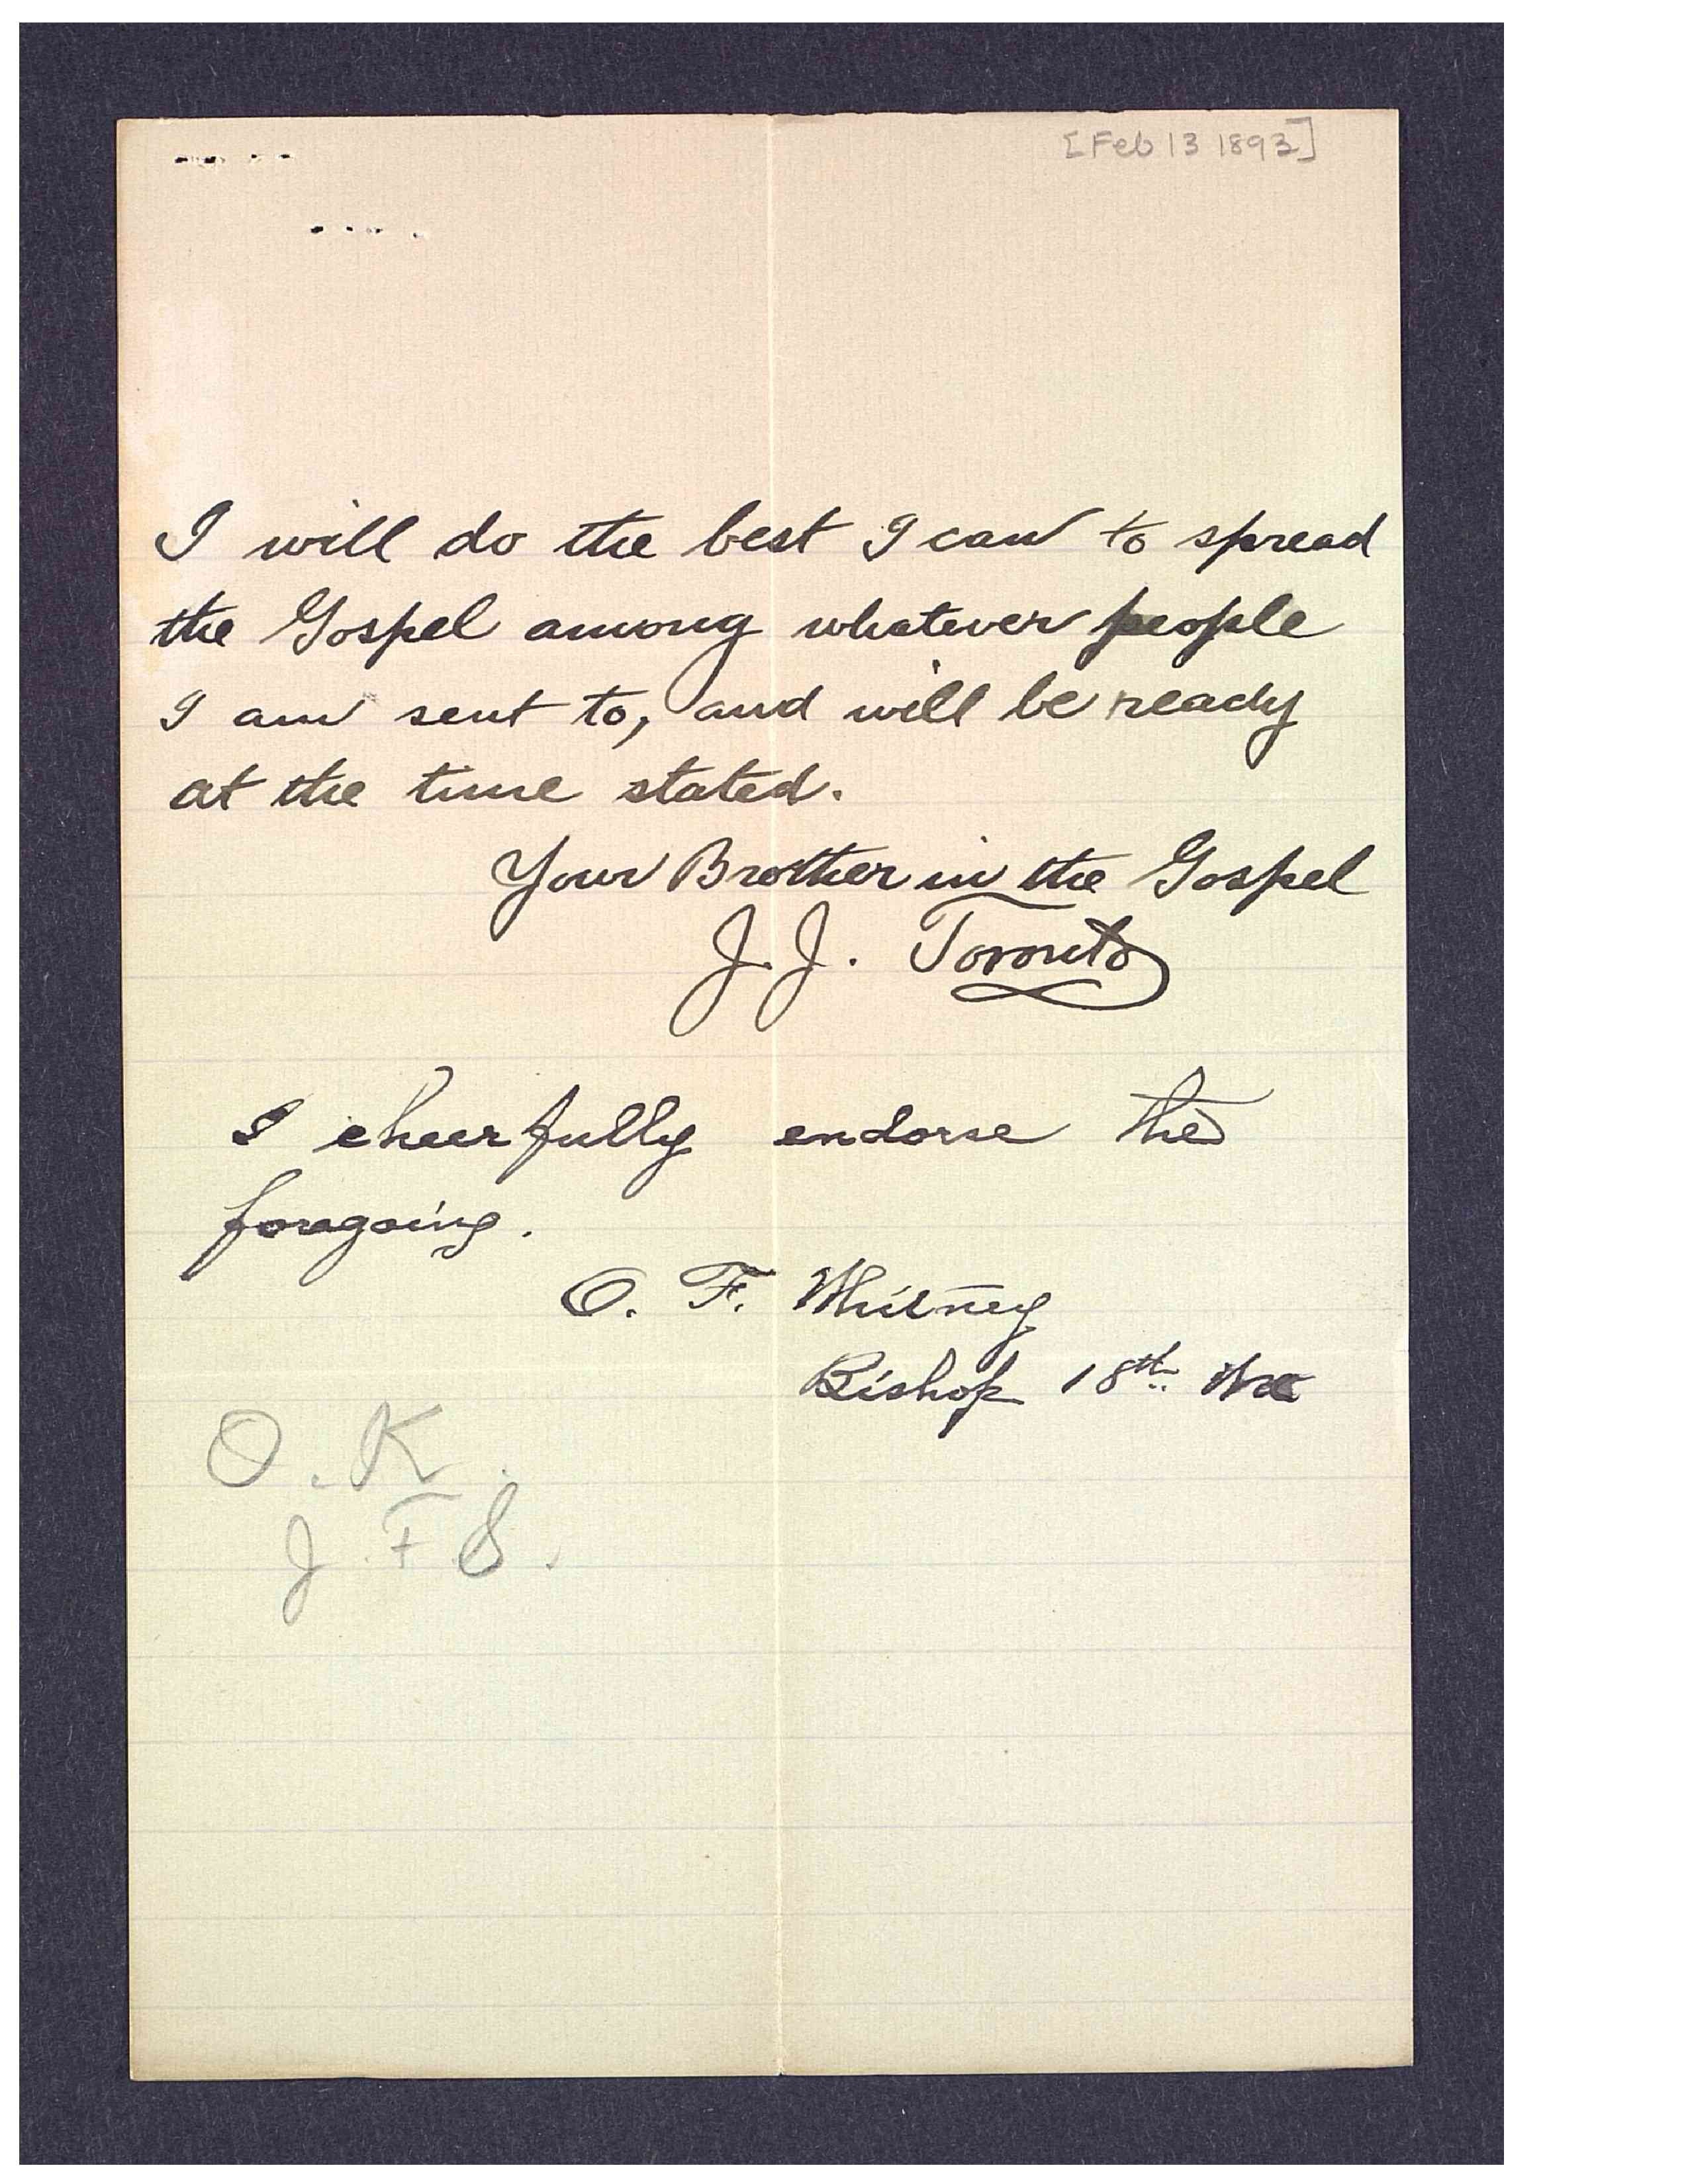 [Feb 13 1893]
I will do the best I can to spread
the Gospel among whatever people
I am sent to, and will be ready
at the time stated.
Your Brother in the Gospel
J. J. Toronto
I cheerfully endorse the
foregoing.
O. F. Whitney
Bishop 18th
O.K.
J.F.S.